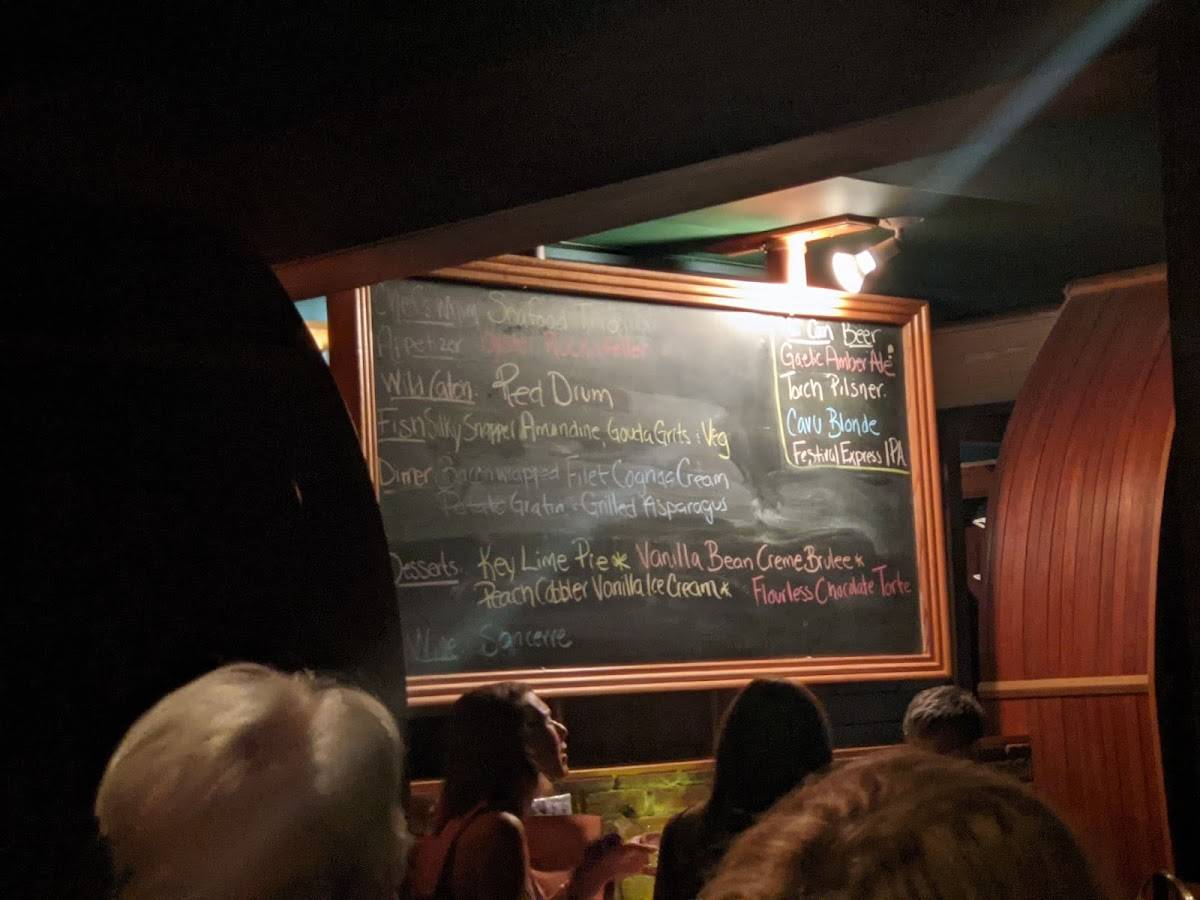 Seafood
Appetizer Oyster Rockefeller
Wild Catch Red Drum
Fish Silky Snapper Amandine, Gouda Grits : Veg
Dinner Bacon wrapped Filet Cognac Cream
Potato Gratin : Grilled Asparagus
Desserts Key Lime Pie* Vanilla Bean Creme Brulee*
Peach Cobbler Vanilla Ice Cream* Flourless Chocolate Torte
Wine Sancerre
Can Beer
Gaelic Amber Ale
Torch Pilsner.
Cavu Blonde
Festival Express IPA